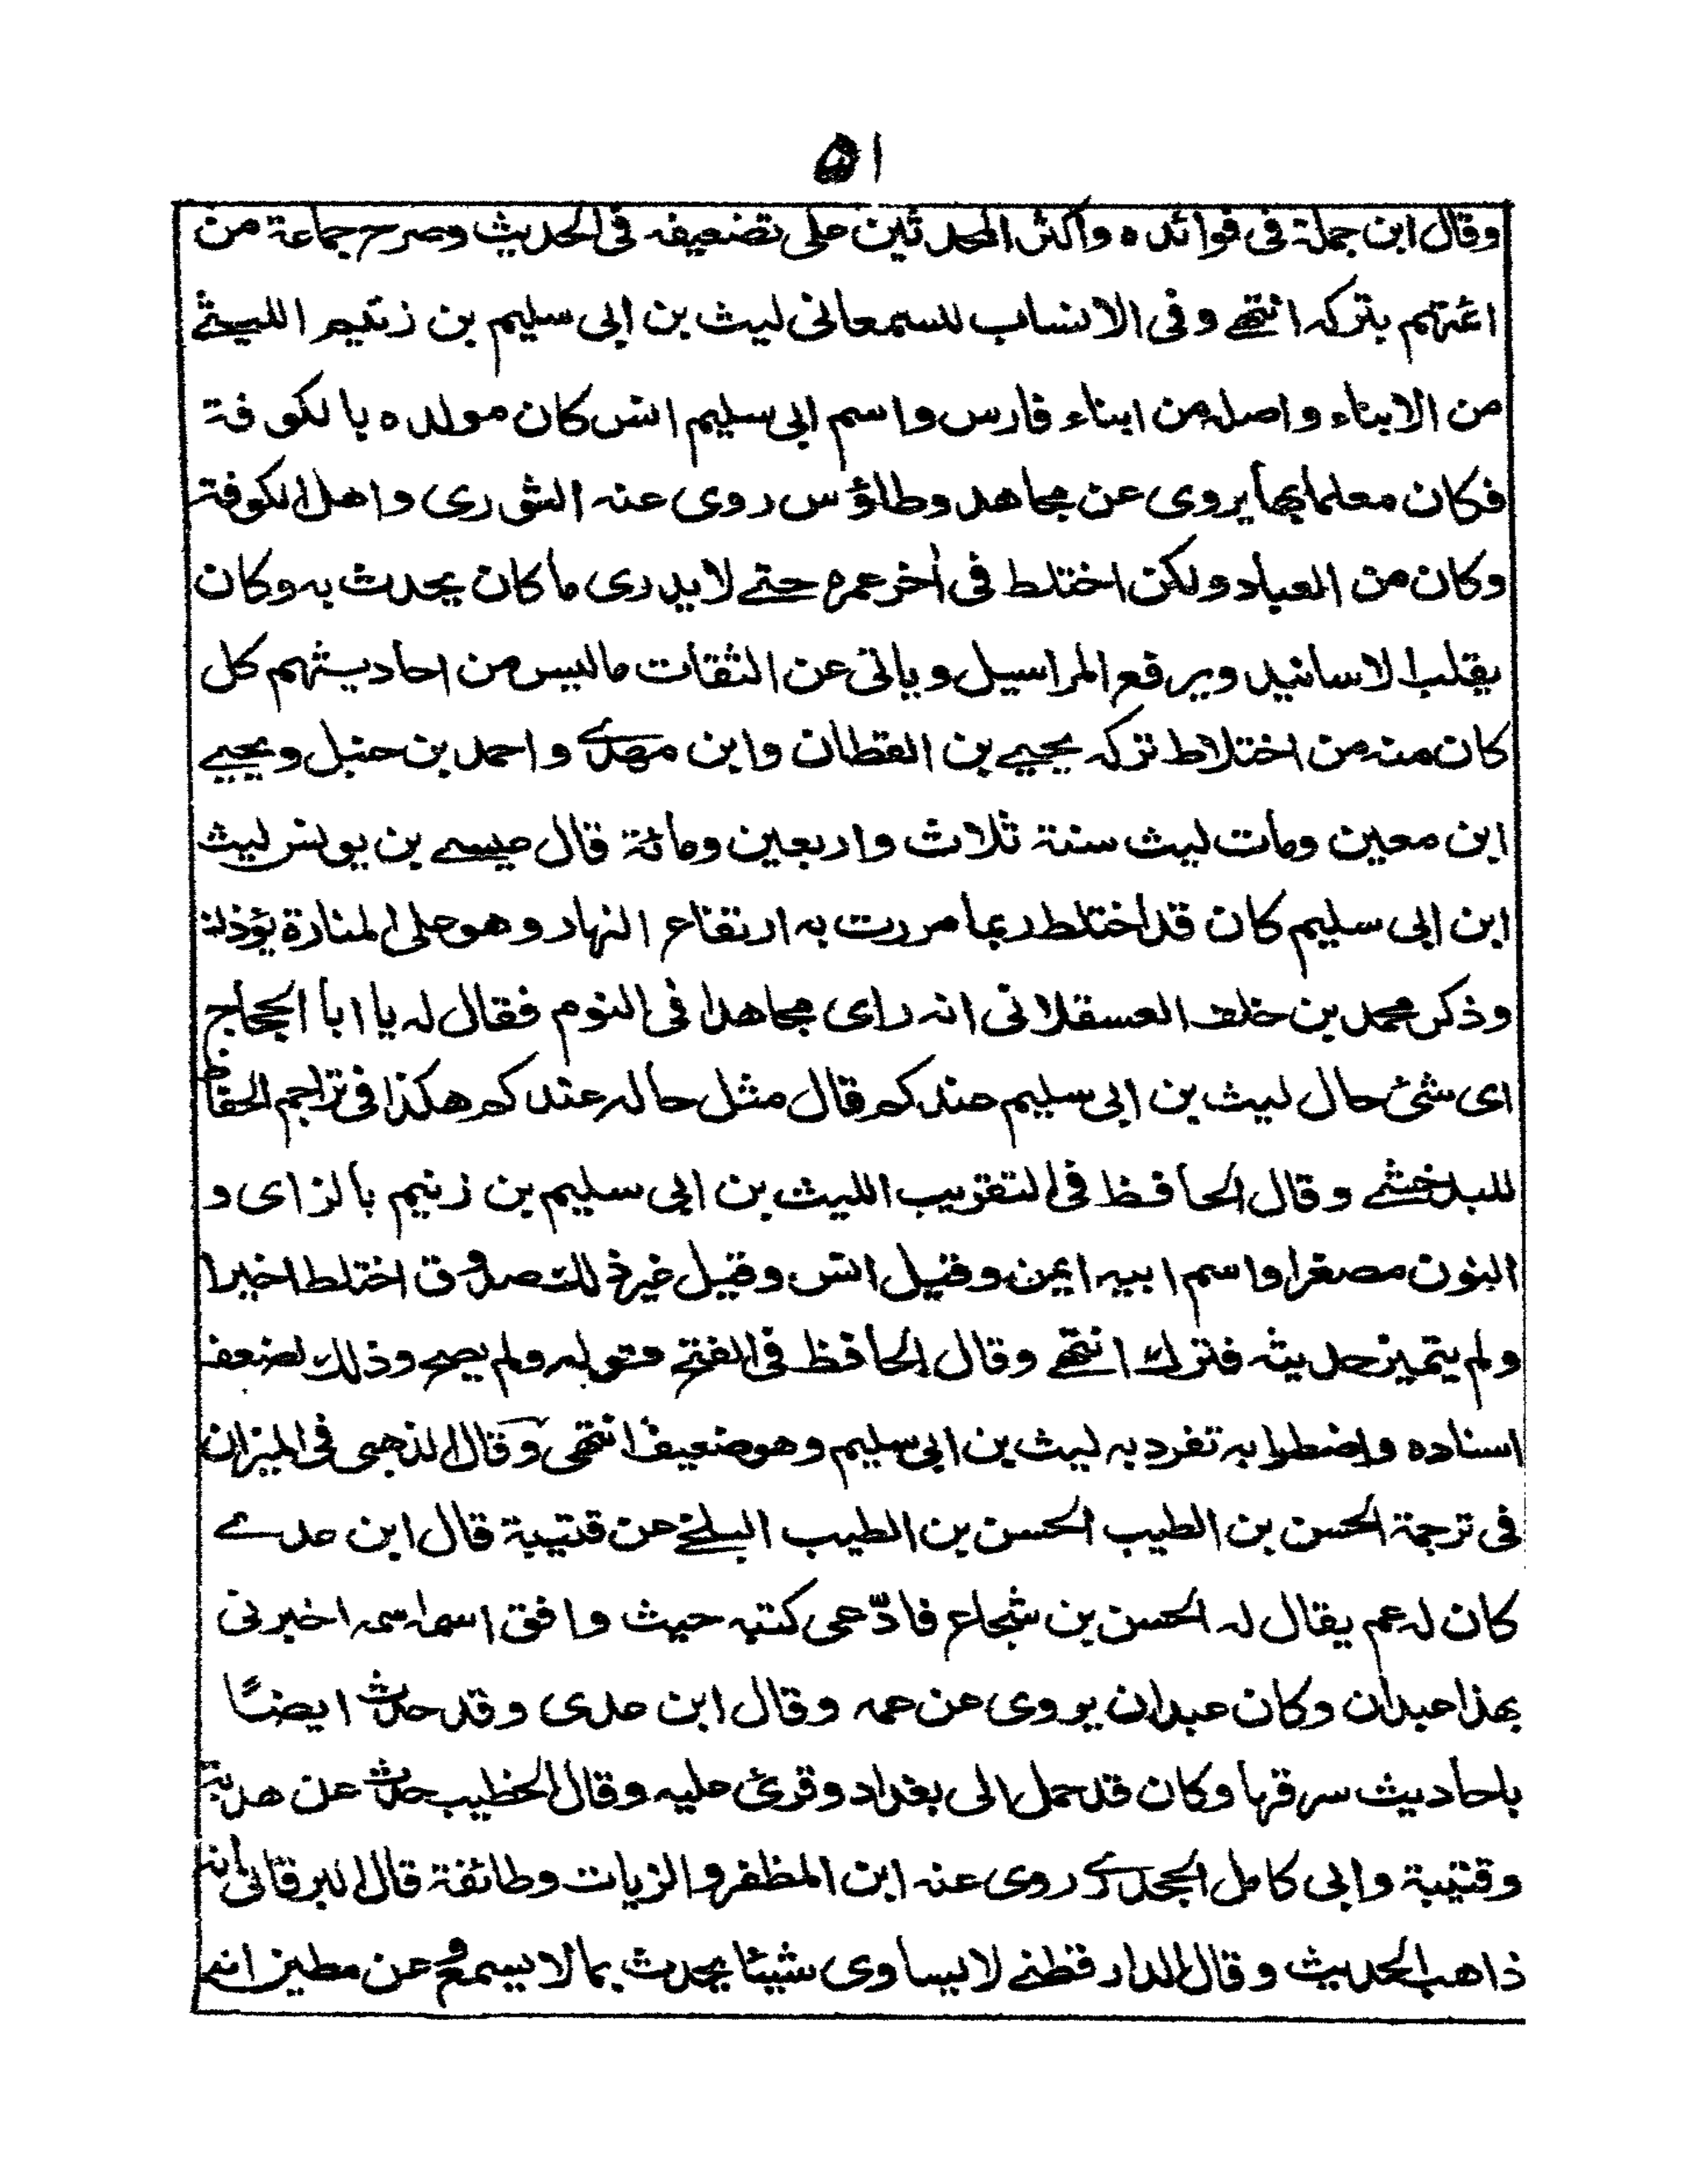 ٥١
وقال ابن جملة فى فوائده واكثر المحدثين على تضعيفه فى الحديث وصرح جماعة من
ائمتهم بتركه انتهى وفى الانساب للسمعانى ليث بن ابى سليم بن زنيم الليثى
من الابناء واصله من ابناء فارس واسم ابى سليم انس كان مولده بالكوفة
فكان معلما بها يروى عن مجاهد وطاؤس روى عنه الثورى واهل الكوفة
وكان من العباد ولكن اختلط فى اٰخر عمره حتى لا يدرى ما كان يحدث به وكان
يقلب الاسانيد ويرفع المراسيل وياتى عن الثقات ما ليس من احاديثهم كل
كان منه من اختلاط تركه يحيى بن القطان وابن مهدى واحمد بن حنبل ويحيى
ابن معين ومات ليث سنة ثلاث واربعين ومائة قال عيسى بن يونس ليث
ابن ابى سليم كان قد اختلط ربما مررت به ارتفاع النهار وهو على المنارة يؤذن
وذكر محمد بن خلف العسقلانى انه راى مجاهدا فى النوم فقال له يا ابا الحجاج
اى شئ حال ليث بن ابى سليم عندكم قال مثل حاله عندكم هكذا فى تراجم الحفاظ
للبدخشى وقال الحافظ فى التقريب الليث بن ابى سليم بن زنيم بالزاى و
النون مصغرا واسم ابيه ايمن وقيل انس وقيل غير ذلك صدوق اختلط اخيرا
ولم يتميز حديثه فترك انتهى وقال الحافظ فى الفتح قوله ولم يصح وذلك لضعف
اسناده واضطرابه تفرد به ليث بن ابى سليم وهو ضعيف انتهى وقال الذهبى فى الميزان
فى ترجمة الحسن بن الطيب الحسن بن الطيب البلخى عن قتيبة قال ابن عدى
كان له عم يقال له الحسن بن شجاع فادّعى كتبه حيث وافق اسمه اسمه اخبرنى
بهذا عبدان وكان عبدان يروى عن عمه وقال ابن عدى وقد حدث ايضًا
باحاديث سرقها وكان قد حمل الى بغداد وقرئ عليه وقال الخطيب حدث عن هدبة
وقتيبة وابى كامل الجحدرى روى عنه ابن المظفر والزيات وطائفة قال البرقانى انه
ذاهب الحديث وقال الدارقطنى لا يساوى شيئا يحدث بما لا يسمع وعن مطين انه